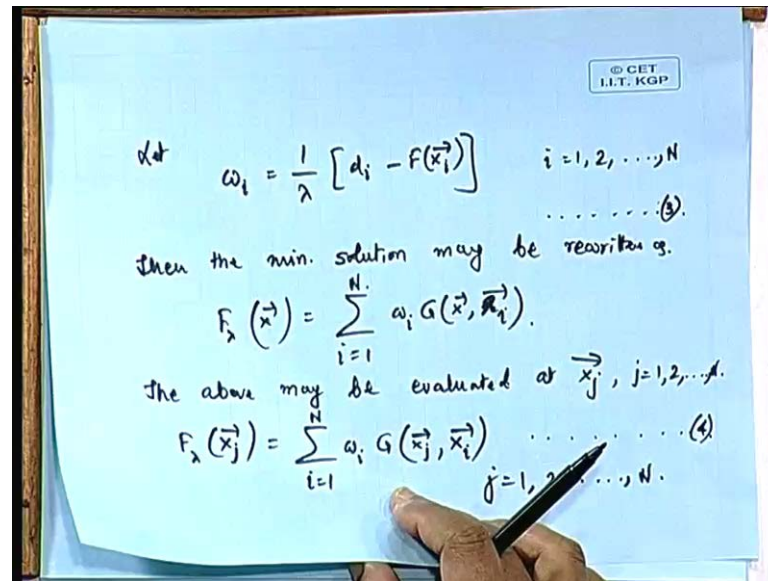 © CET
I.I.T. KGP
Let ω_i = 1/λ [d_i − F(x⃗_i)] i = 1, 2, ...., N
........(3).
Then the min. solution may be rewritten as.
F_λ(x⃗) = Σ_{i=1}^{N.} ω_i G(x⃗, x⃗_i).
The above may be evaluated at x⃗_j, j=1,2,...,N.
F_λ(x⃗_j) = Σ_{i=1}^{N} ω_i G(x⃗_j, x⃗_i) ........(4)
j=1, 2, ...., N.